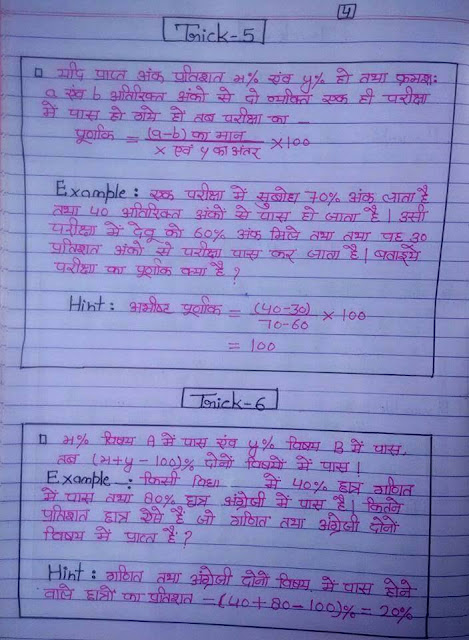 4
Trick-5
□ यदि प्राप्त अंक प्रतिशत x% एंव y% हो तथा क्रमशः
a एंव b अतिरिक्त अंको से दो व्यक्ति एक ही परीक्षा
में पास हो गये हो तब परीक्षा का —
पूर्णांक = (a-b) का मान / x एवं y का अंतर ×100
Example : एक परीक्षा में सुबोध 70% अंक लाता है
तथा 40 अतिरिक्त अंको से पास हो जाता है। उसी
परीक्षा में देवू को 60% अंक मिले तथा तथा वह 30
प्रतिशत अंको से परीक्षा पास कर जाता है। बताइये
परीक्षा का पूर्णांक क्या है ?
Hint : अभीष्ट पूर्णांक = (40-30) / 70-60 × 100
= 100
Trick-6
□ x% विषय A में पास एंव y% विषय B में पास,
तब (x+y-100)% दोनों विषयों में पास।
Example : किसी विद्या में 40% छात्र गणित
में पास तथा 80% छात्र अंग्रेजी में पास है। कितने
प्रतिशत छात्र ऐसे हैं जो गणित तथा अंग्रेजी दोनों
विषय में पास हैं ?
Hint : गणित तथा अंग्रेजी दोनों विषय में पास होने
वाले छात्रों का प्रतिशत -(40+80-100)% = 20%